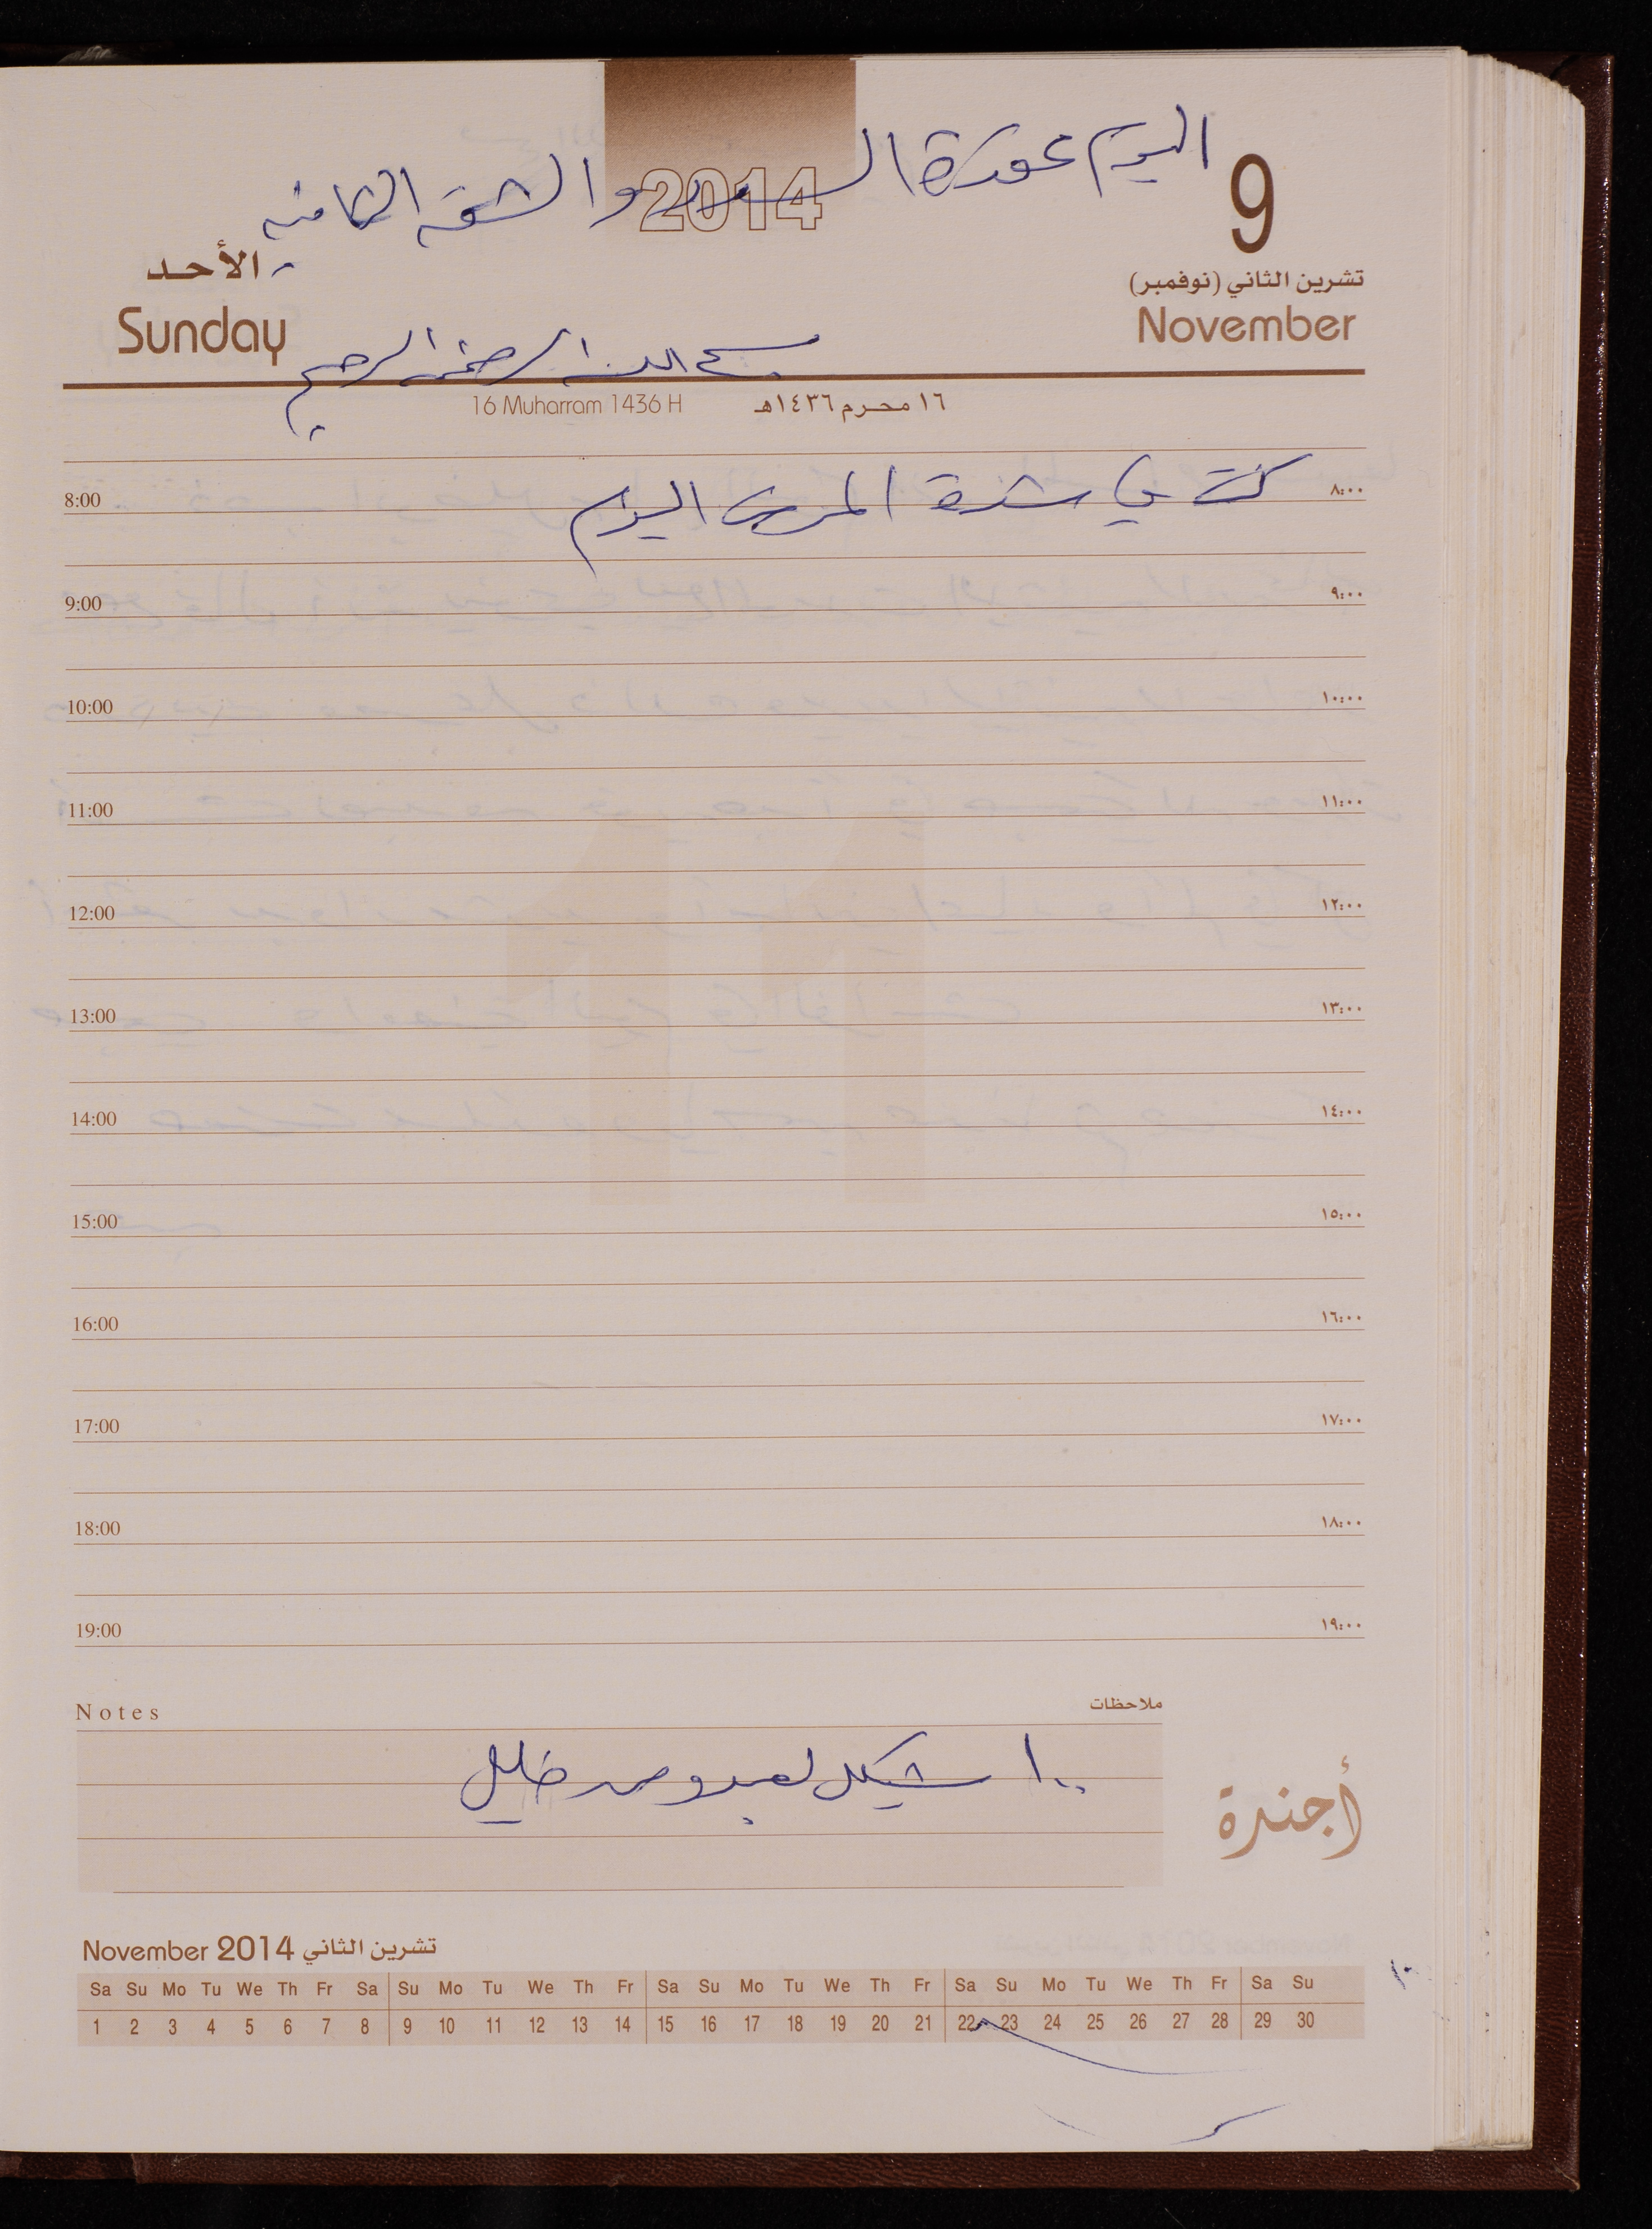 اليوم عورة السور والشقه الثامنه
2014
9
الأحد
تشرين الثاني (نوفمبر)
Sunday
November
بسم الله الرحمن الرحيم
16 Muharram 1436 H ١٦ محرم ١٤٣٦هـ
كنت في شدة المرض اليوم
8:00 ٨:٠٠
9:00 ٩:٠٠
10:00 ١٠:٠٠
11:00 ١١:٠٠
12:00 ١٢:٠٠
13:00 ١٣:٠٠
14:00 ١٤:٠٠
15:00 ١٥:٠٠
16:00 ١٦:٠٠
17:00 ١٧:٠٠
18:00 ١٨:٠٠
19:00 ١٩:٠٠
Notes ملاحظات
١٠٠ شيكل لعبد خليل
أجندة
November 2014 تشرين الثاني
Sa Su Mo Tu We Th Fr Sa Su Mo Tu We Th Fr Sa Su Mo Tu We Th Fr Sa Su Mo Tu We Th Fr Sa Su
1 2 3 4 5 6 7 8 9 10 11 12 13 14 15 16 17 18 19 20 21 22 23 24 25 26 27 28 29 30